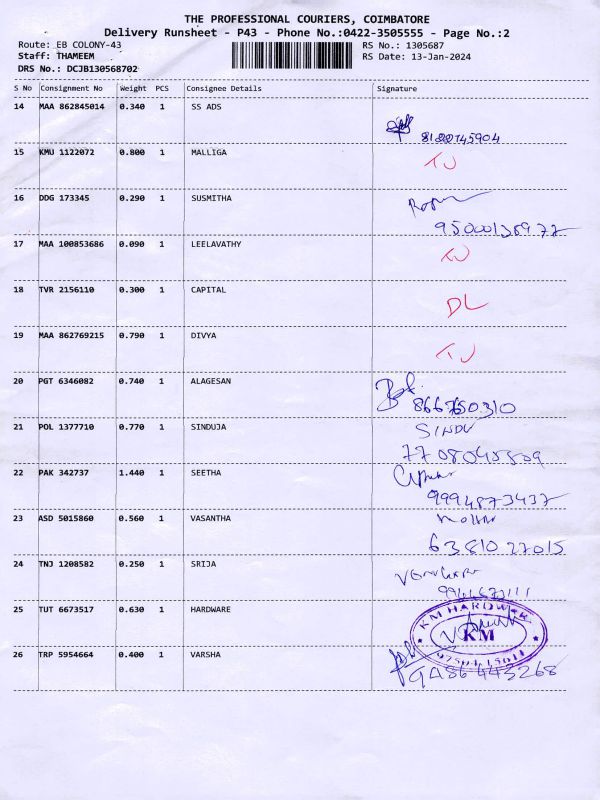 THE PROFESSIONAL COURIERS, COIMBATORE
Delivery Runsheet - P43 - Phone No.:0422-3505555 - Page No.:2
Route: EB COLONY-43 RS No.: 1305687
Staff: THAMEEM RS Date: 13-Jan-2024
DRS No.: DCJB130568702
S No Consignment No Weight PCS Consignee Details Signature
14 MAA 862845014 0.340 1 SS ADS
15 KMU 1122072 0.800 1 MALLIGA
16 DDG 173345 0.290 1 SUSMITHA
17 MAA 100853686 0.090 1 LEELAVATHY
18 TVR 2156110 0.300 1 CAPITAL DL
19 MAA 862769215 0.790 1 DIVYA
20 PGT 6346082 0.740 1 ALAGESAN
21 POL 1377710 0.770 1 SINDUJA SINDU
7708045509
22 PAK 342737 1.440 1 SEETHA
9994873437
23 ASD 5015860 0.560 1 VASANTHA
6381027015
24 TNJ 1208582 0.250 1 SRIJA
25 TUT 6673517 0.630 1 HARDWARE
KM HARDWARE
KM
26 TRP 5954664 0.400 1 VARSHA
9486443268